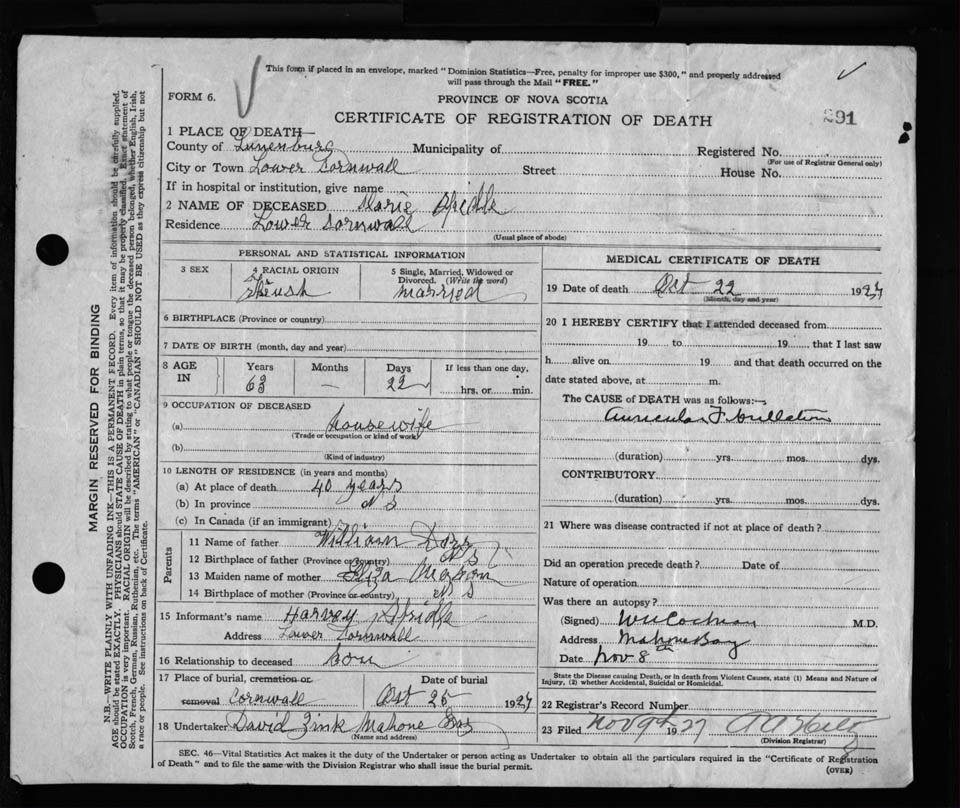 This form if placed in an envelope, marked "Dominion Statistics—Free, penalty for improper use $300," and properly addressed
will pass through the Mail "FREE."
FORM 6.
PROVINCE OF NOVA SCOTIA
CERTIFICATE OF REGISTRATION OF DEATH
891
1 PLACE OF DEATH—
County of Lunenburg Municipality of Registered No.
(For use of Registrar General only)
City or Town Lower Cornwall Street House No.
If in hospital or institution, give name
2 NAME OF DECEASED Marie
Residence Lower Cornwall
(Usual place of abode)
PERSONAL AND STATISTICAL INFORMATION
3 SEX 4 RACIAL ORIGIN 5 Single, Married, Widowed or
Divorced. (Write the word)
married
6 BIRTHPLACE (Province or country)
7 DATE OF BIRTH (month, day and year)
8 AGE IN Years Months Days If less than one day,
63 — 22 hrs. or min.
9 OCCUPATION OF DECEASED
(a) housewife
(Trade or occupation or kind of work)
(b)
(Kind of industry)
10 LENGTH OF RESIDENCE (in years and months)
(a) At place of death 40 years
(b) In province N S
(c) In Canada (if an immigrant)
Parents
11 Name of father William
12 Birthplace of father (Province or country) N S
13 Maiden name of mother Eliza
14 Birthplace of mother (Province or country) N S
15 Informant's name Harvey
Address Lower Cornwall
16 Relationship to deceased Son
17 Place of burial, cremation or Date of burial
removal Cornwall Oct 25 1927
18 Undertaker David Zink Mahone Bay
(Name and address)
MEDICAL CERTIFICATE OF DEATH
19 Date of death Oct 22 1927
(Month, day and year)
20 I HEREBY CERTIFY that I attended deceased from
19 to 19 that I last saw
h alive on 19 and that death occurred on the
date stated above, at m.
The CAUSE of DEATH was as follows:—
Auricular Fibrillation
(duration) yrs. mos. dys.
CONTRIBUTORY
(duration) yrs. mos. dys.
21 Where was disease contracted if not at place of death?
Did an operation precede death? Date of
Nature of operation
Was there an autopsy?
(Signed) M.D.
Address Mahone Bay
Date Nov 8th
State the Disease causing Death, or in death from Violent Causes, state (1) Means and Nature of
Injury, (2) whether Accidental, Suicidal or Homicidal.
22 Registrar's Record Number
23 Filed Nov 9th 1927
(Division Registrar)
SEC. 46—Vital Statistics Act makes it the duty of the Undertaker or person acting as Undertaker to obtain all the particulars required in the "Certificate of Registration
of Death" and to file the same with the Division Registrar who shall issue the burial permit.
(OVER)
MARGIN RESERVED FOR BINDING
N.B.—WRITE PLAINLY WITH UNFADING INK—THIS IS A PERMANENT RECORD. Every item of information should be carefully supplied.
AGE should be stated EXACTLY. PHYSICIANS should STATE CAUSE OF DEATH in plain terms, so that it may be properly classified. Exact statement of
OCCUPATION is very important. RACIAL ORIGIN will be described by stating to what people or tongue the deceased person belonged, whether English, Irish,
Scotch, French, German, Russian, Ruthenian, etc. The terms "AMERICAN" or "CANADIAN" SHOULD NOT BE USED as they express citizenship but not
a race or people. See instructions on back of Certificate.